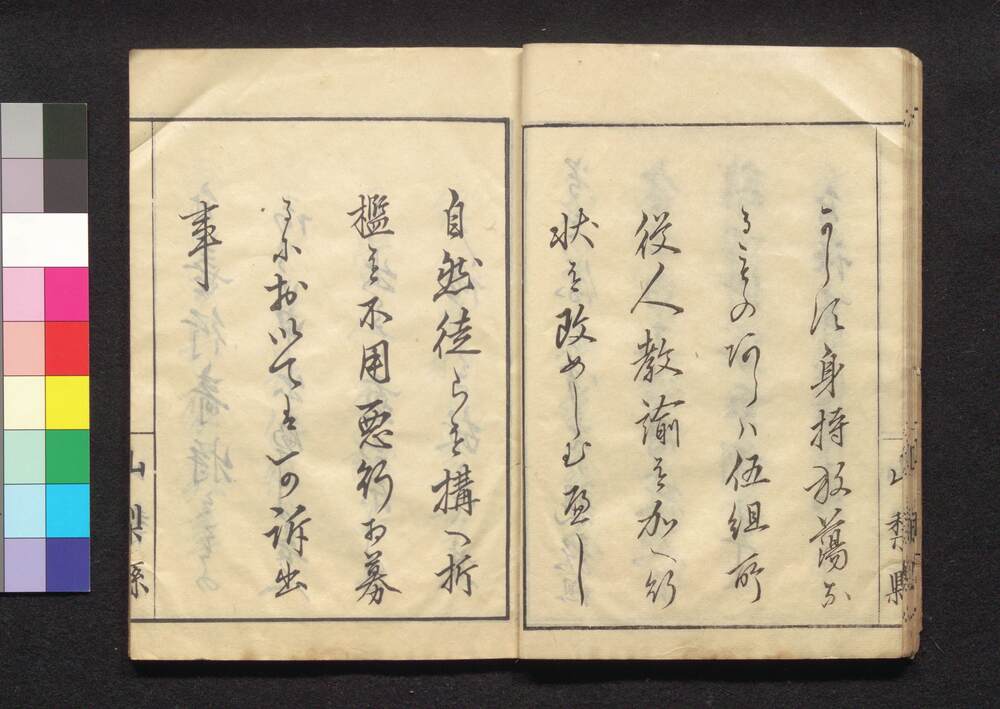 可らす身持放蕩な
るもの阿らハ伍組所
役人教諭を加へ行
状を改めしむ遍し
自然徒らを構へ折
檻を不用悪行相募
るにおゐてハ可訴出
事
山梨縣
山梨縣